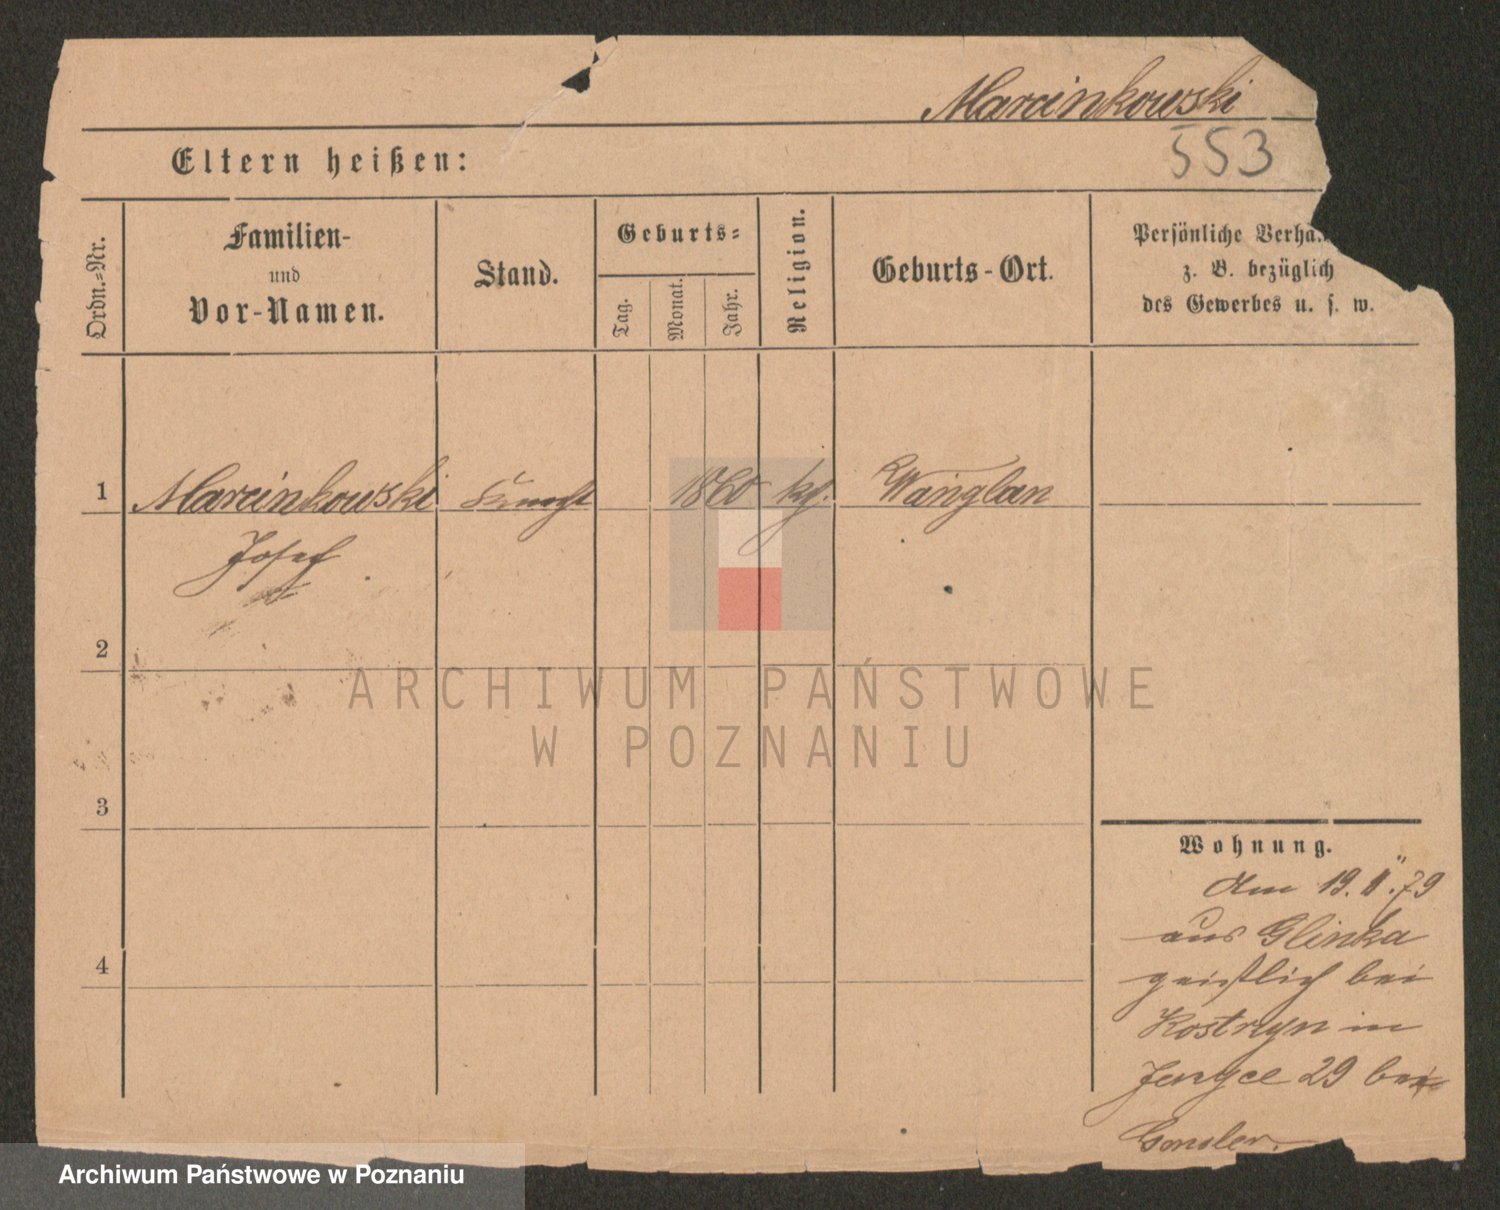 Marcinkowski
553
Eltern heißen:
Ordn.-Nr.
Familien-
und
Vor-Namen.
Stand.
Geburts-
Tag.
Monat.
Jahr.
Religion.
Geburts-Ort.
Persönliche Verhä
z. B. bezüglich
des Gewerbes u. s. w.
1 Marcinkowski Knecht 1860 kf. Wanglan
Josef
2
3
4
Wohnung.
Am 19. II. 79
aus Glinka
geistlich bei
Kostrzyn in
29 bei
ARCHIWUM PAŃSTWOWE
W POZNANIU
Archiwum Państwowe w Poznaniu